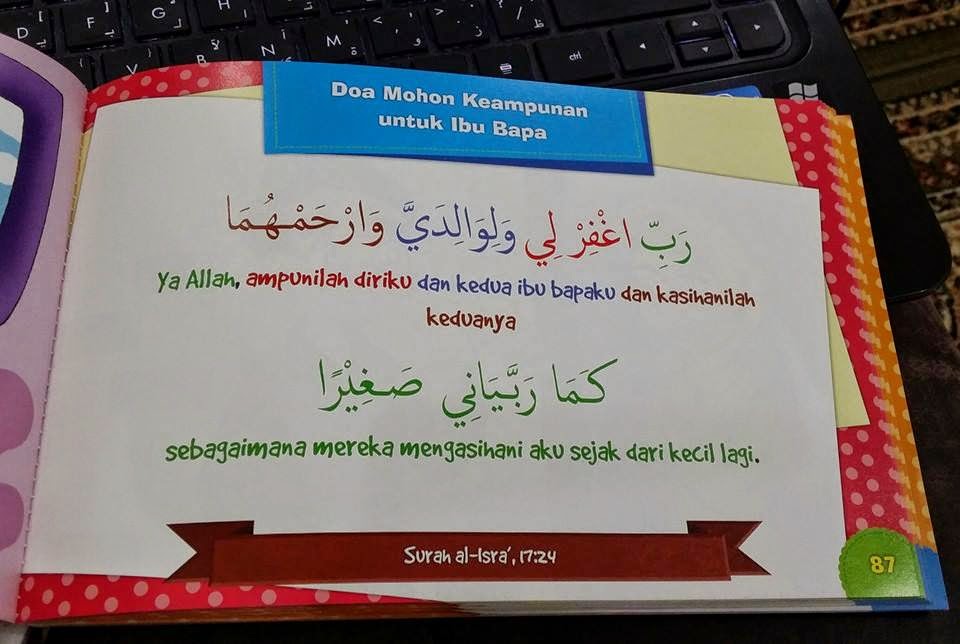 Doa Mohon Keampunan
untuk Ibu Bapa
رَبِّ اغْفِرْ لِي وَلِوَالِدَيَّ وَارْحَمْهُمَا
Ya Allah, ampunilah diriku dan kedua ibu bapaku dan kasihanilah
keduanya
كَمَا رَبَّيَانِي صَغِيْرًا
sebagaimana mereka mengasihani aku sejak dari kecil lagi.
Surah al-Isra’, 17:24
87
D F G H
V B N M
ctrl